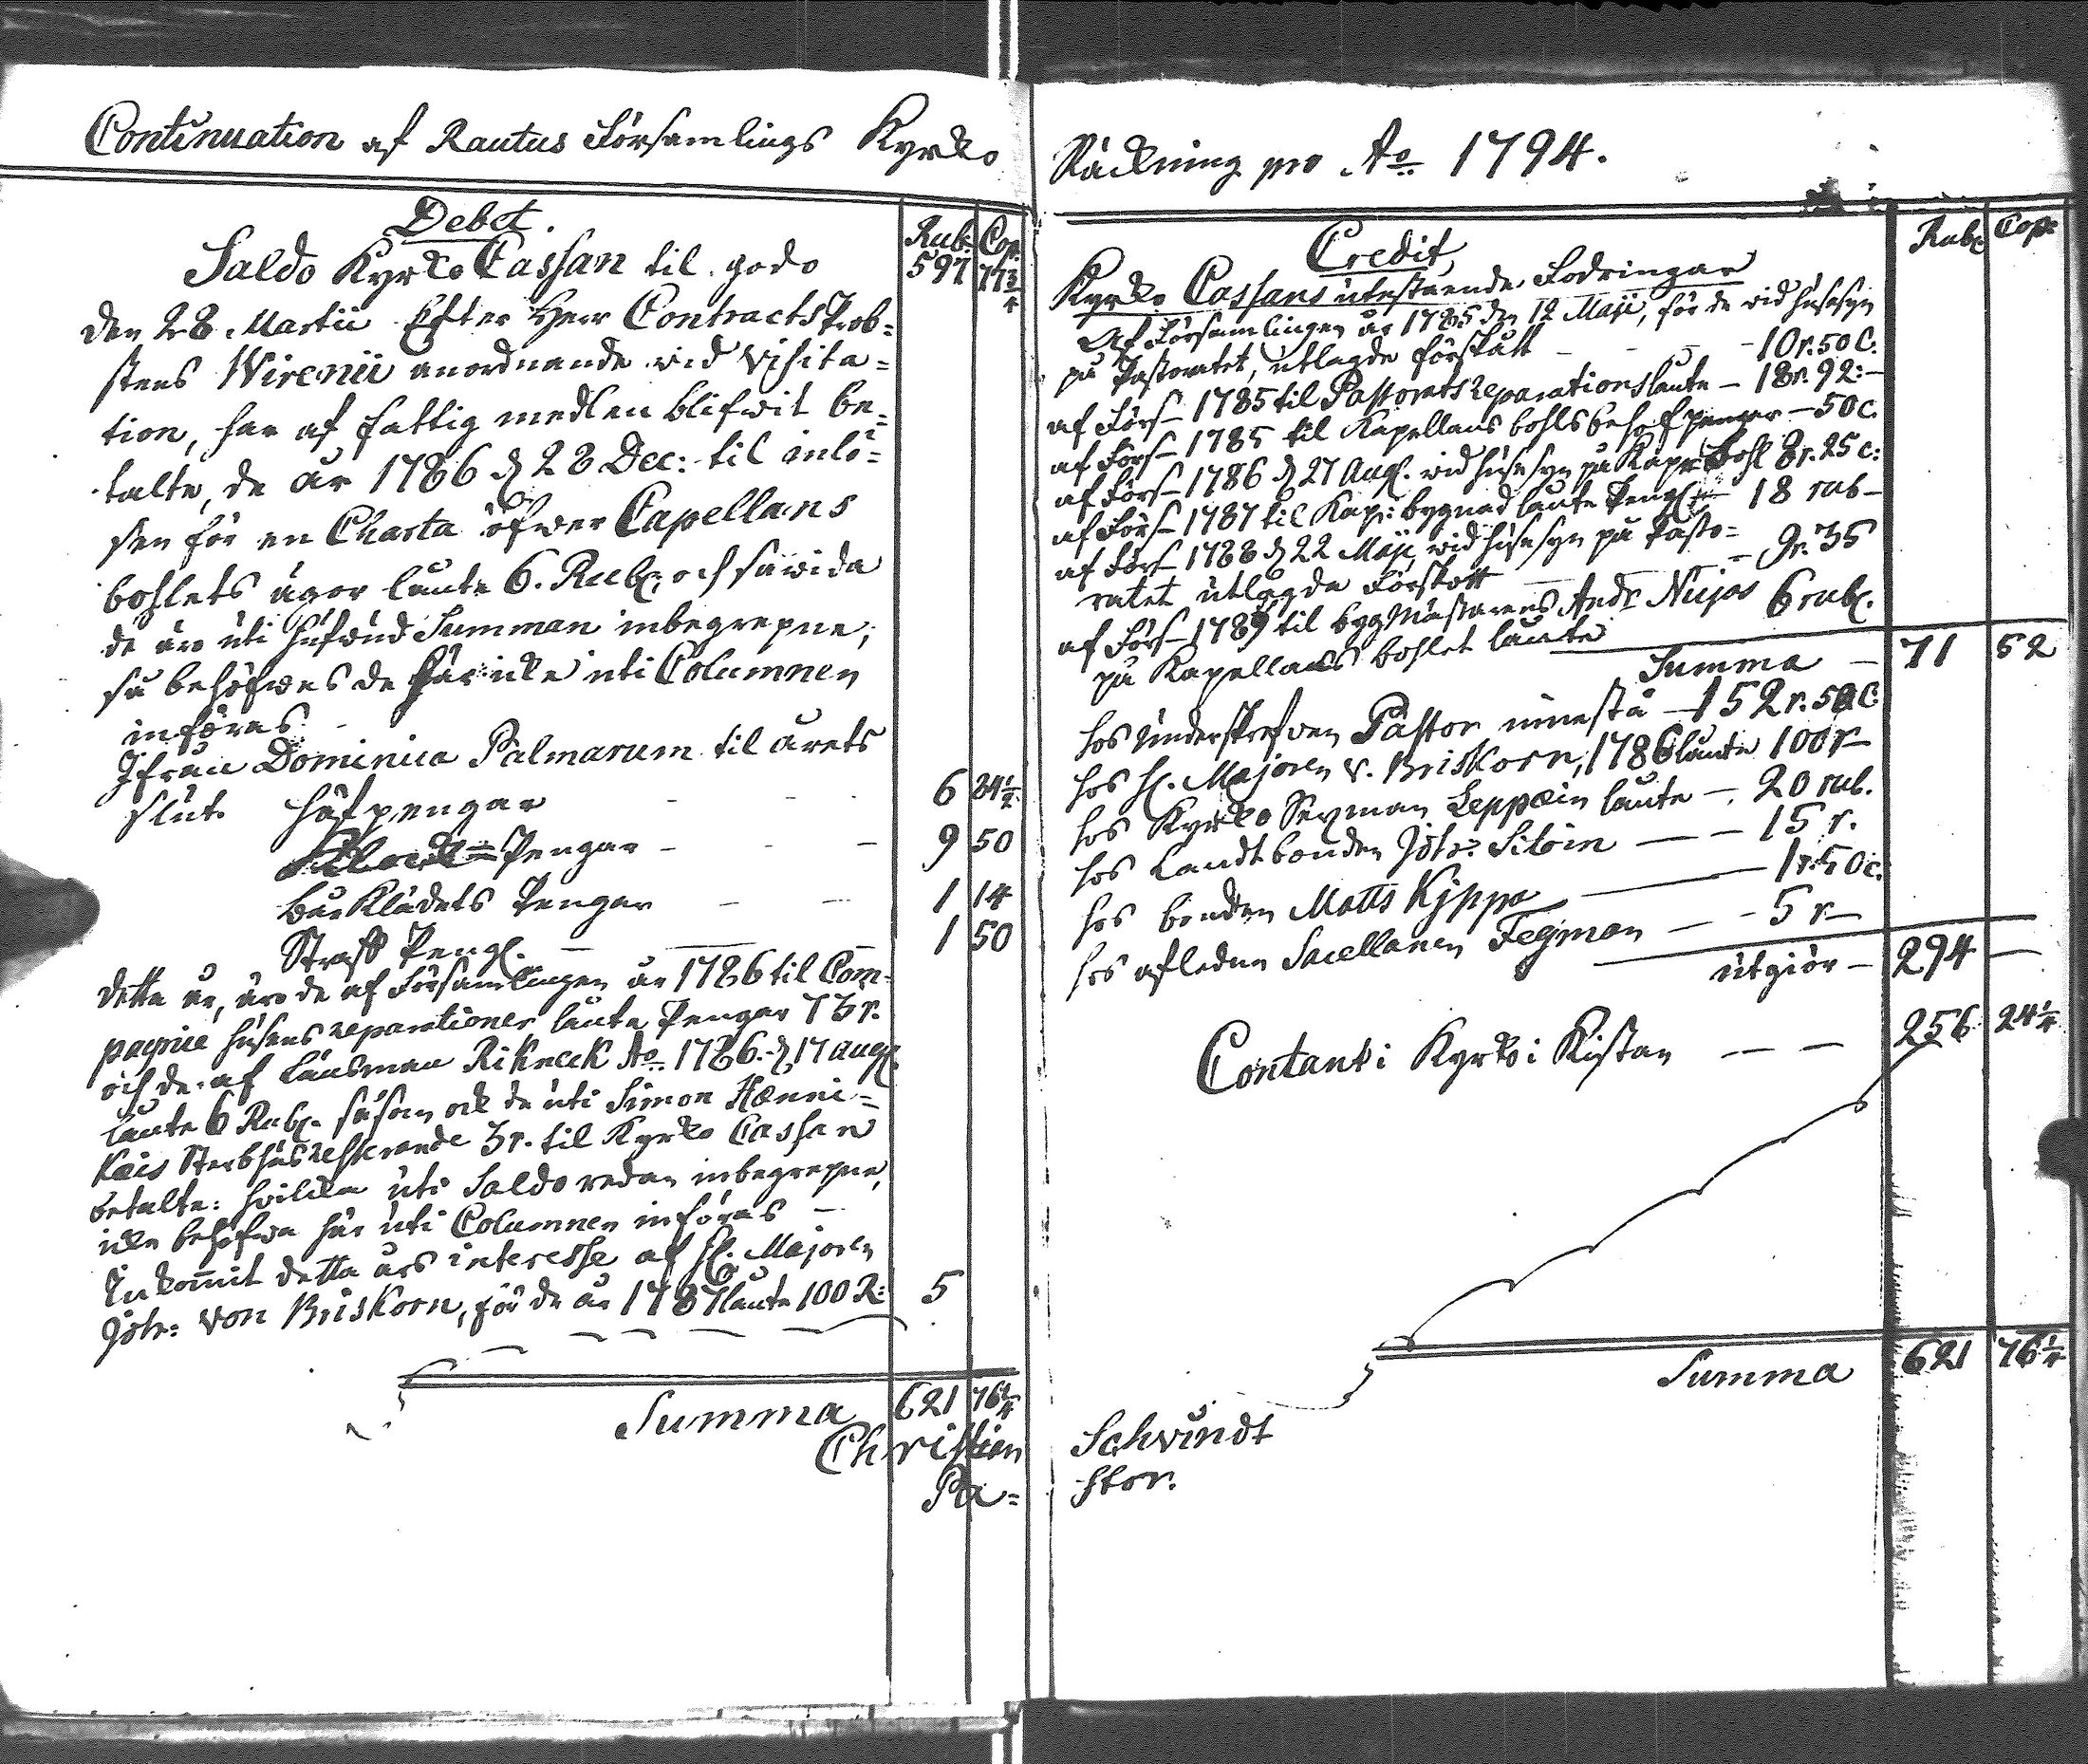 Continuation af Rautus Församlings Kyrko
Debet.
Rub. Cop.
Saldo Kyrko Cassan til godo 597 77 3/4
den 28 Martii Efter Herr Contracts Prob=
stens Wirenii anordnande wid Visita=
tion, har af fattig medlen blifwit be=
talte, de år 1786 d 28 Dec: til inlö=
sen för en Charta öfwer Capellans
bohlets ägor lånte 6. Rub. och såwida
de äro uti hufwud Summan inbegrepne;
så behöfwes de här icke uti Columnen
införas
Ifrån Dominica Palmarum til årets
slut. Håfpengar - - - 6 24 1/2
Pengar - - - 9 50
Bår Klädets Pengar - - 1 14
Straff Peng. - - - 1 50
Detta år, äro de af Församlingen år 1786 til Com=
pagnie husens reparationer lånte Pengar 73 r.
och de af Länsman Rikneck Ao 1786. d 17 Aug.
lånte 6 Rub. såsom ock de uti Simon Hænni=
käis Sterbhus resterande 3 r. til Kyrko Cassan
betalte: hwilka uti Saldo redan inbegrepne,
icke behöfwa här uti Columnen införas -
Inkommit detta års interesse af H. Majoren
Joh: von Briskorn, för de år 1787 lånte 100 R: 5
Summa 621 76 1/4
Christian
Pa=
Räckning pro Ao 1794.
Credit,
Rub. Cop:
Kyrko Cassans utestående Fodringar
Af Församlingen år 1785 den 12 Maji, för de wid husesyn
på Pastoratet, utlagde förskått - - - 10 r. 50 C.
af Förs- 1785 til Pastorats reparations lånte - 18 r. 92:-
af Förs- 1785 til Kapellans bohls behof penger - 50 c.
af Förs- 1786 d 27 Aug. wid husesyn på Kap: Bohl 8 r. 25 c:
af Förs- 1787 til Kap: bygnad lånte Peng. - 18 rub -
af Förs- 1788 d 22 Maji wid husesyn på Pasto=
ratet utlagde Förskott - - - 9 r. 35
af Förs- 1789 til bygMästarens Andr Nujas 6 rub.
på Kapellans bohlet lånte
Summa - 71 52
hos Underskrefwen Pastor innestå - 152 r. 50 C.
hos H. Majoren v. Briskorn, 1786 lånte 100 r -
hos Kyrko Sexman Leppæin lånte -. 20 rub.
hos Landtbonden Joh: Siloin - - 15 r.
hos bonden Matts Kjppa - 1 r. 50 c.
hos afledne Sacellanen Fegman - - 5 r -
utgiör - 294 -
Contant i Kyrko i Kistan - - 256 24 1/4
Summa 621 76 1/4
Schvindt
stor.